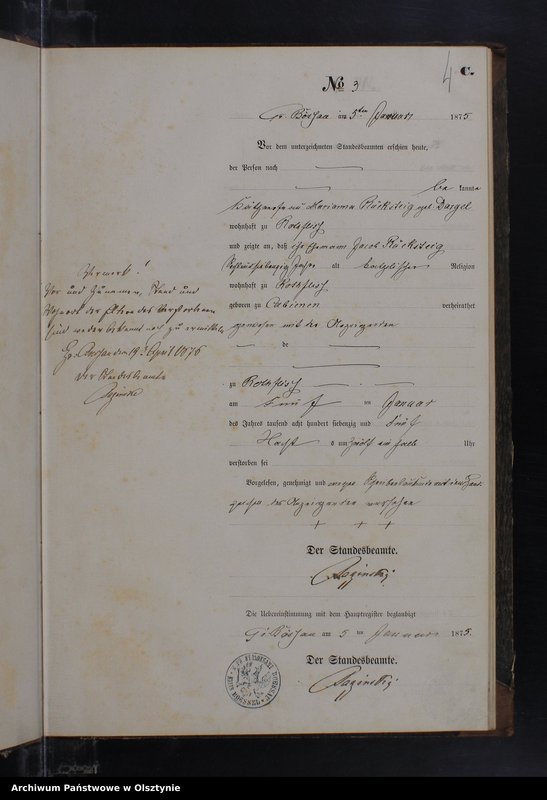 4 C.
No 3
Gr. Bößau am 5ten Januar 1875
Vor dem unterzeichneten Standesbeamten erschien heute,
der Person nach
be kannt
Marianna Rücksteig geb. Dargel
wohnhaft zu Rothfließ
und zeigte an, daß ihr Ehemann Jacob Rücksteig
sechsundsiebenzig Jahre alt katholischer Religion
wohnhaft zu Rothfließ
geboren zu verheirathet
gewesen mit der Anzeigenden
de
zu Rothfließ
am fünften Januar
des Jahres tausend acht hundert siebenzig und fünf
Nachts um zwölf ein halb Uhr
verstorben sei
Vorgelesen, genehmigt und wegen Schreibensunkunde mit dem Hand-
zeichen der Anzeigenden versehen
+ + +
Der Standesbeamte.
Die Uebereinstimmung mit dem Hauptregister beglaubigt
Gr. Bößau am 5 ten Januar 1875.
Der Standesbeamte.
Vermerk!
Vor und Zunamen, Stand und
Wohnort der Eltern des Verstorbenen
sind weder bekannt noch zu ermitteln
Gr. Bössau den 19. April 1876
Der Standesbeamte
Archiwum Państwowe w Olsztynie